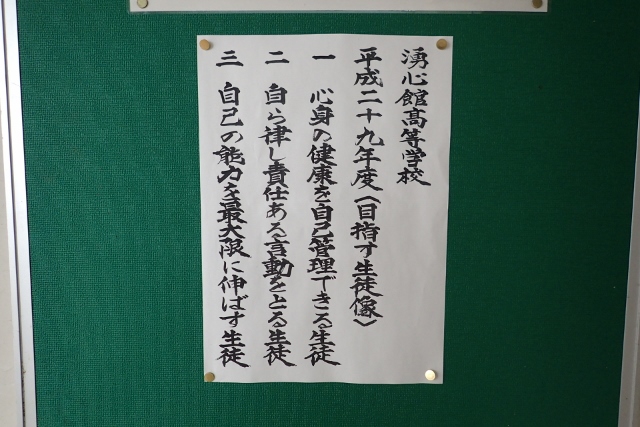 湧心館高等学校
平成二十九年度〈目指す生徒像〉
一 心身の健康を自己管理できる生徒
二 自ら律し責任ある言動をとる生徒
三 自己の能力を最大限に伸ばす生徒